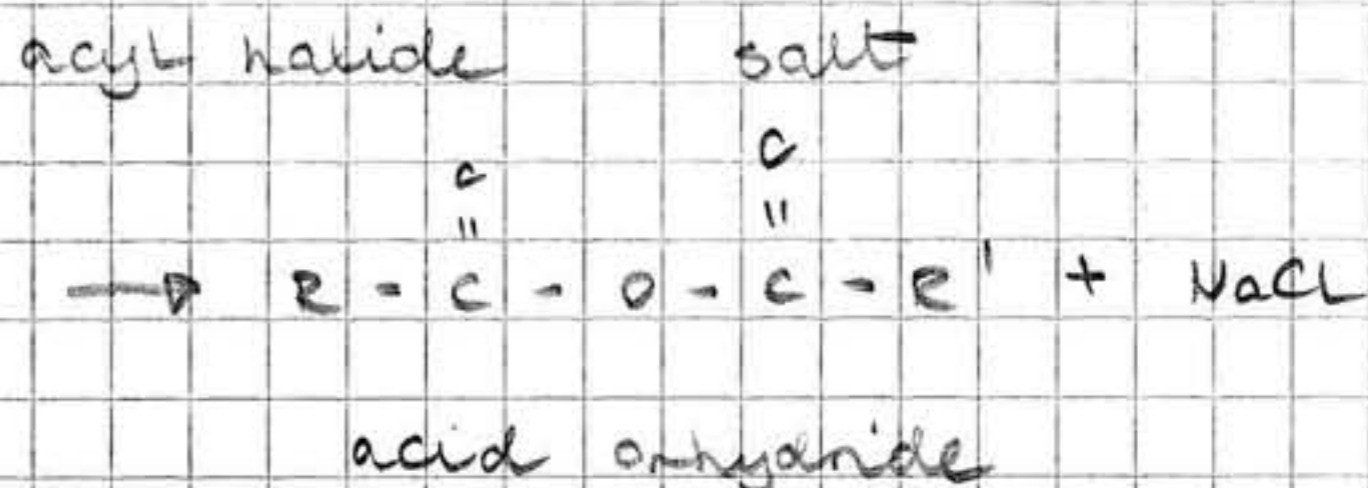 acyl halide salt
O O
|| ||
→ R - C - O - C - R' + NaCl
acid anhydride